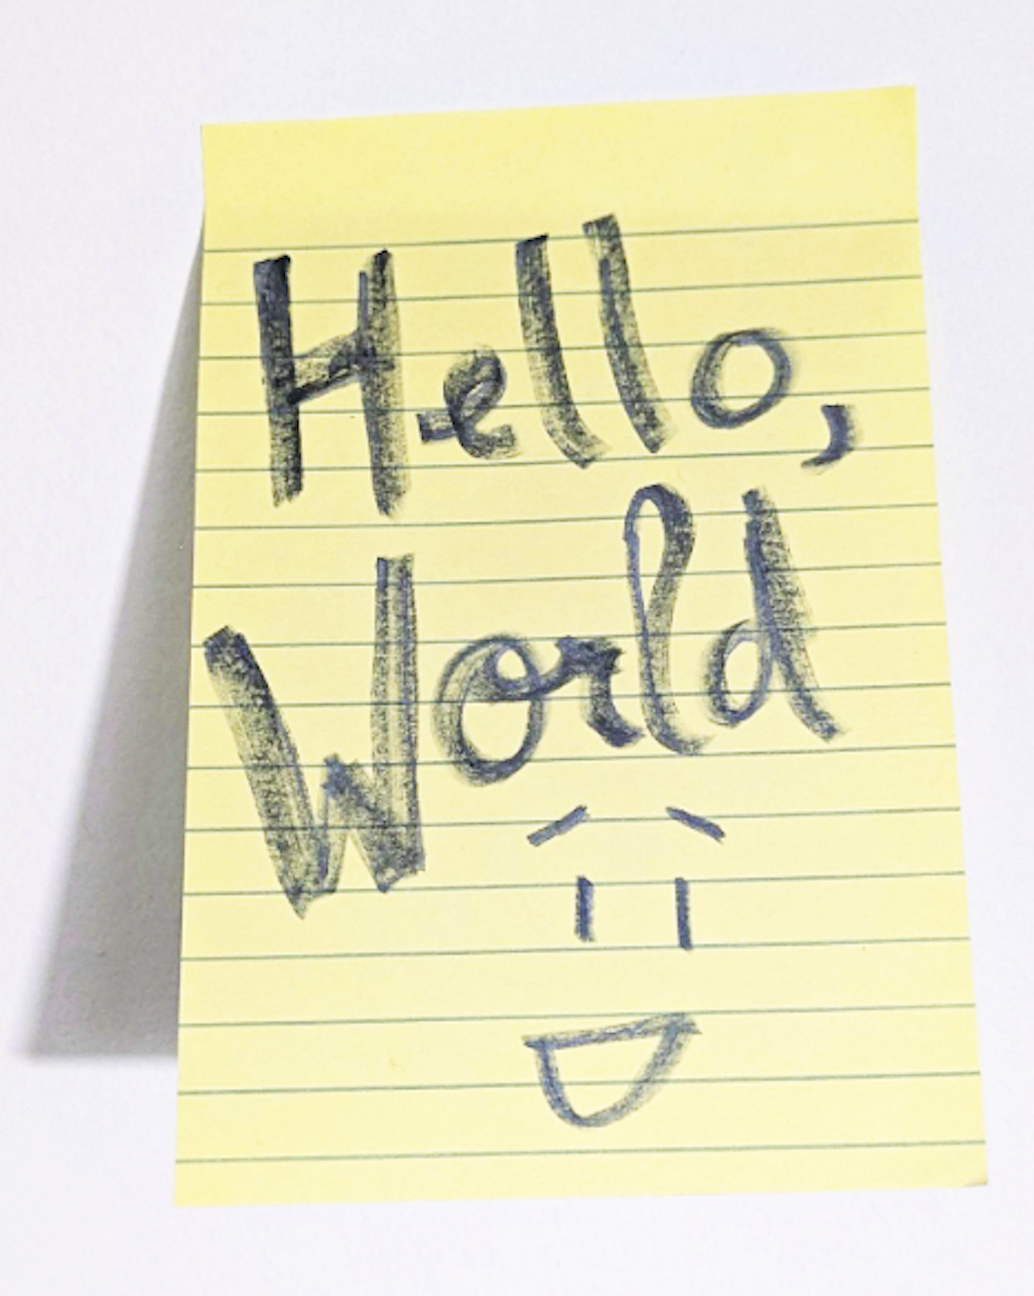 Hello,
World